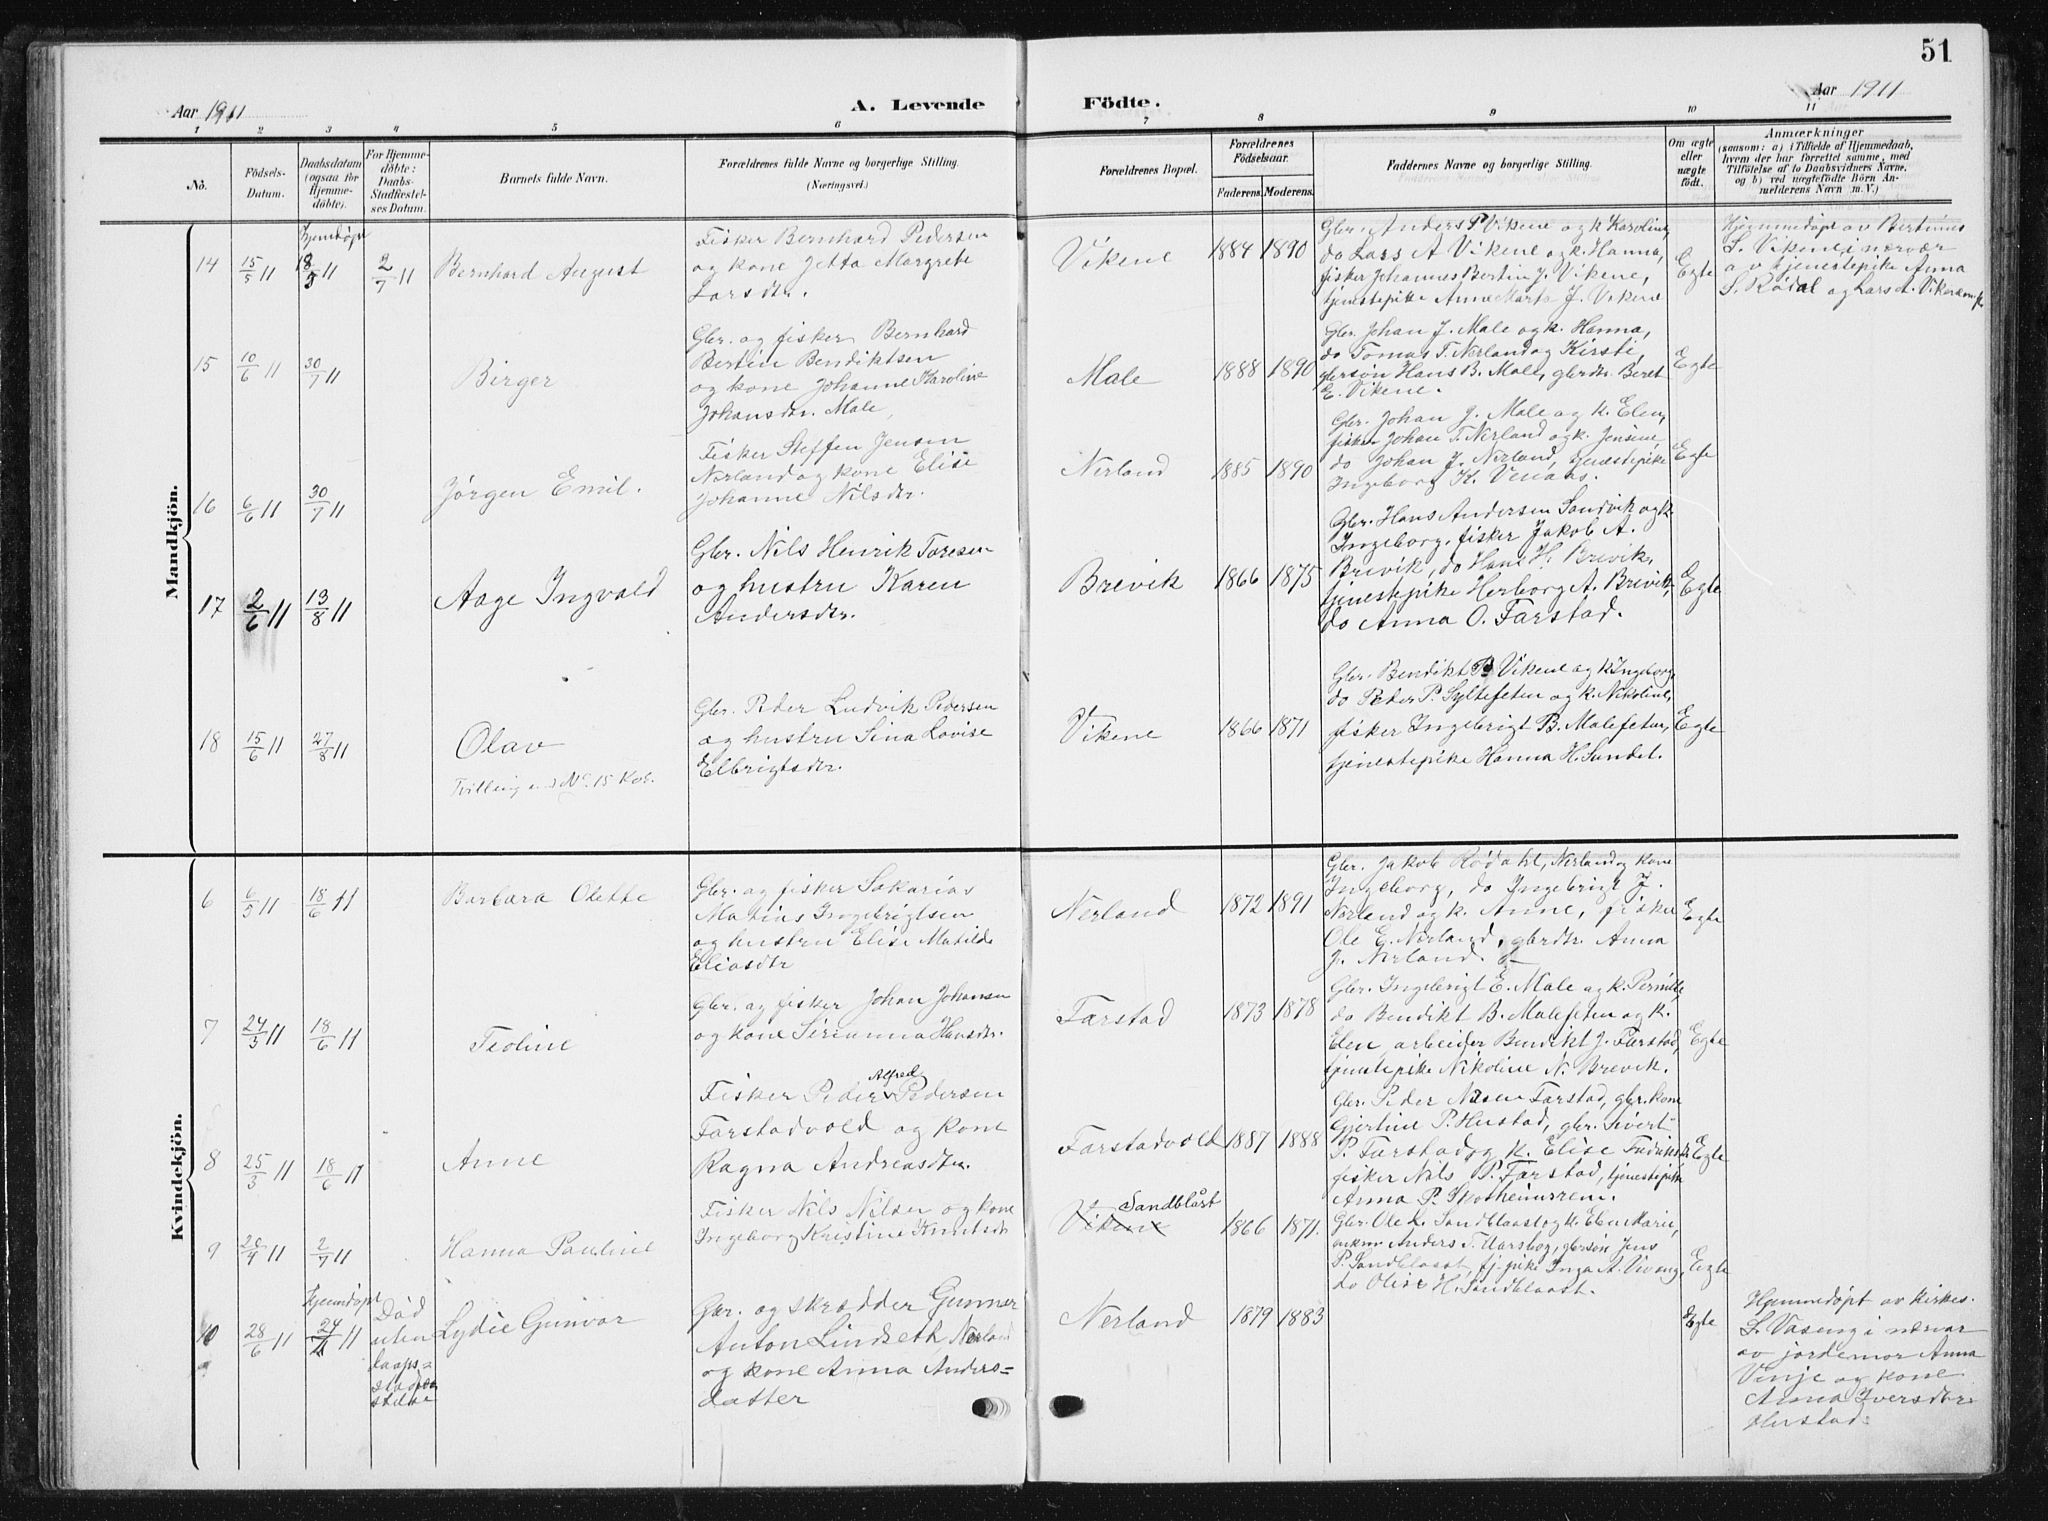 51
Aar 1911
A. Levende
Födte.
Aar 1911
1
2
3
4
5
6
7
8
9
10
11
No.
Födsels-
Datum.
Daabsdatum
(ogsaa for
Hjemme-
döbte).
For Hjemme-
döbte:
Daabs-
Stadfæstel-
ses Datum.
Barnets fulde Navn.
Forældrenes fulde Navne og borgerlige Stilling.
(Næringsvei.)
Forældrenes Bopæl.
Forældrenes
Födselsaar.
Faderens.
Moderens.
Faddernes Navne og borgerlige Stilling.
Om ægte
eller
uægte
födt.
Anmærkninger
(saasom: a) i Tilfælde af Hjemmedaab,
hvem der har forrettet samme, med
Tilföielse af to Daabsvidners Navne,
og b) ved uægtefödte Börn An-
melderens Navn m. V.)
Mandkjön.
14
15/5 11
Hjemdöpt
18/5 11
2/7 11
Bernhard August
Fisker Bernhard Pedersen
og kone Jetta Margrete
Larsdtr.
Vikene
1884
1890
Gbr. Anders P Vikene og k Karoline,
do Lars A Vikene og k. Hanna,
fisker Johannes Bertin J. Vikene,
tjenestepike Anne Marta J. Vikene
Egte
Hjemmedöpt av Bertinus
L. Vikene i nærvær
av tjenestepike Anna
S. Rödal og Lars A. Vikene
15
10/6 11
30/7 11
Birger
Gbr. og fisker Bernhard
Bertin Bendiktsen
og kone Johanne Karoline
Johansdtr. Male,
Male
1888
1890
Gbr. Johan J. Male og k. Hanna,
do Tomas T. Nerland og Kirsti,
gbrsön Hans B. Male, gbrdtr. Beret
E. Vikene.
Egte
16
6/6 11
30/7 11
Jörgen Emil.
Fisker Steffen Jensen
Nerland og kone Elise
Johanne Nilsdtr.
Nerland
1885
1890
Gbr. Johan J. Male og k. Elen,
fisker Johan T. Nerland og k. Jensine,
do Johan J. Nerland, tjenestepike
Ingeborg K. Venaas.
Egte
17
2/6 11
13/8 11
Aage Ingvald
Gbr. Nils Henrik Toresen
og hustru Karen
Andersdtr.
Brevik
1866
1875
Gbr. Hans Andersen Sandvik og k.
Ingeborg, fisker Jakob A.
Brevik, do Hans H. Brevik,
tjenestepike Herborg A. Brevik,
do Anna O. Farstad.
Egte
18
15/6 11
27/8 11
Olav
Tvilling med No 15 Kvk.
Gbr. Peder Ludvik Pedersen
og hustru Sina Lovise
Elbrigtsdtr.
Vikene
1866
1871
Gbr. Bendikt B Vikene og k Ingeborg,
do Peder P. Syltefeten og k. Nikoline,
fisker Ingebrigt B. Malefeten,
tjenestepike Hanna H. Sundet.
Egte
Kvindekjön.
6
6/5 11
18/6 11
Barbara Olette
Gbr. og fisker Sakarias
Matias Ingebrigtsen
og hustru Elise Matilde
Eliasdtr
Nerland
1872
1891
Gbr. Jakob Rödahl, Nerland og kone
Ingeborg, do Ingebrigt J.
Nerland og k. Anne, fisker
Ole E. Nerland, gbrdtr. Anna
J. Nerland.
Egte
7
24/5 11
18/6 11
Teoline
Gbr. og fisker Johan Johansen
og kone Serianna Hansdtr.
Farstad
1873
1878
Gbr. Ingebrigt E. Male og k. Pernille,
do Bendikt B. Malefeten og k.
Elen arbeider Bendikt J. Farstad,
tjenestepike Nikoline N. Brevik.
Egte
8
25/3 11
18/6 11
Anne
Alfred
Fisker Peder Pedersen
Farstadvold og kone
Ragna Andreasdtr.
Farstadvold
1887
1888
Gbr. Peder Nilsen Farstad, gbr. kone
Gjertine P. Hustad, gbr. Sivert
P. Farstad og k. Elise
fisker Nils P. Farstad, tjenestepike
Anna P. Skotheimsrem.
Egte
9
20/4 11
2/7 11
Hanna Pauline
Fisker Nils Nilsen og kone
Ingeborg Kristine Knutsdtr
Sandblåst
Vikene
1866
1871.
Gbr. Ole L. Sandblaast og k. Elen Marie,
enkem Anders T. Aarsbog, gbrsön Jens
P. Sandblaast, tj. pike Inga A. Vevang,
do Olise H. Sandblaast.
Egte
10
28/6 11
Hjemdöpt
24/7 11
Död
uten
daaps-
stadfæ
stelse
Lydie Gunvor
Gbr. og skrædder Gunnar
Anton Lindseth, Nerland
og kone Anna Anders-
datter
Nerland
1879
1883
Egte
Hjemmedöpt av kirkes.
L. Vaseng i nærvær
av jordemor Anna
Vinje og kone
Anna Iversdtr.
Hustad.